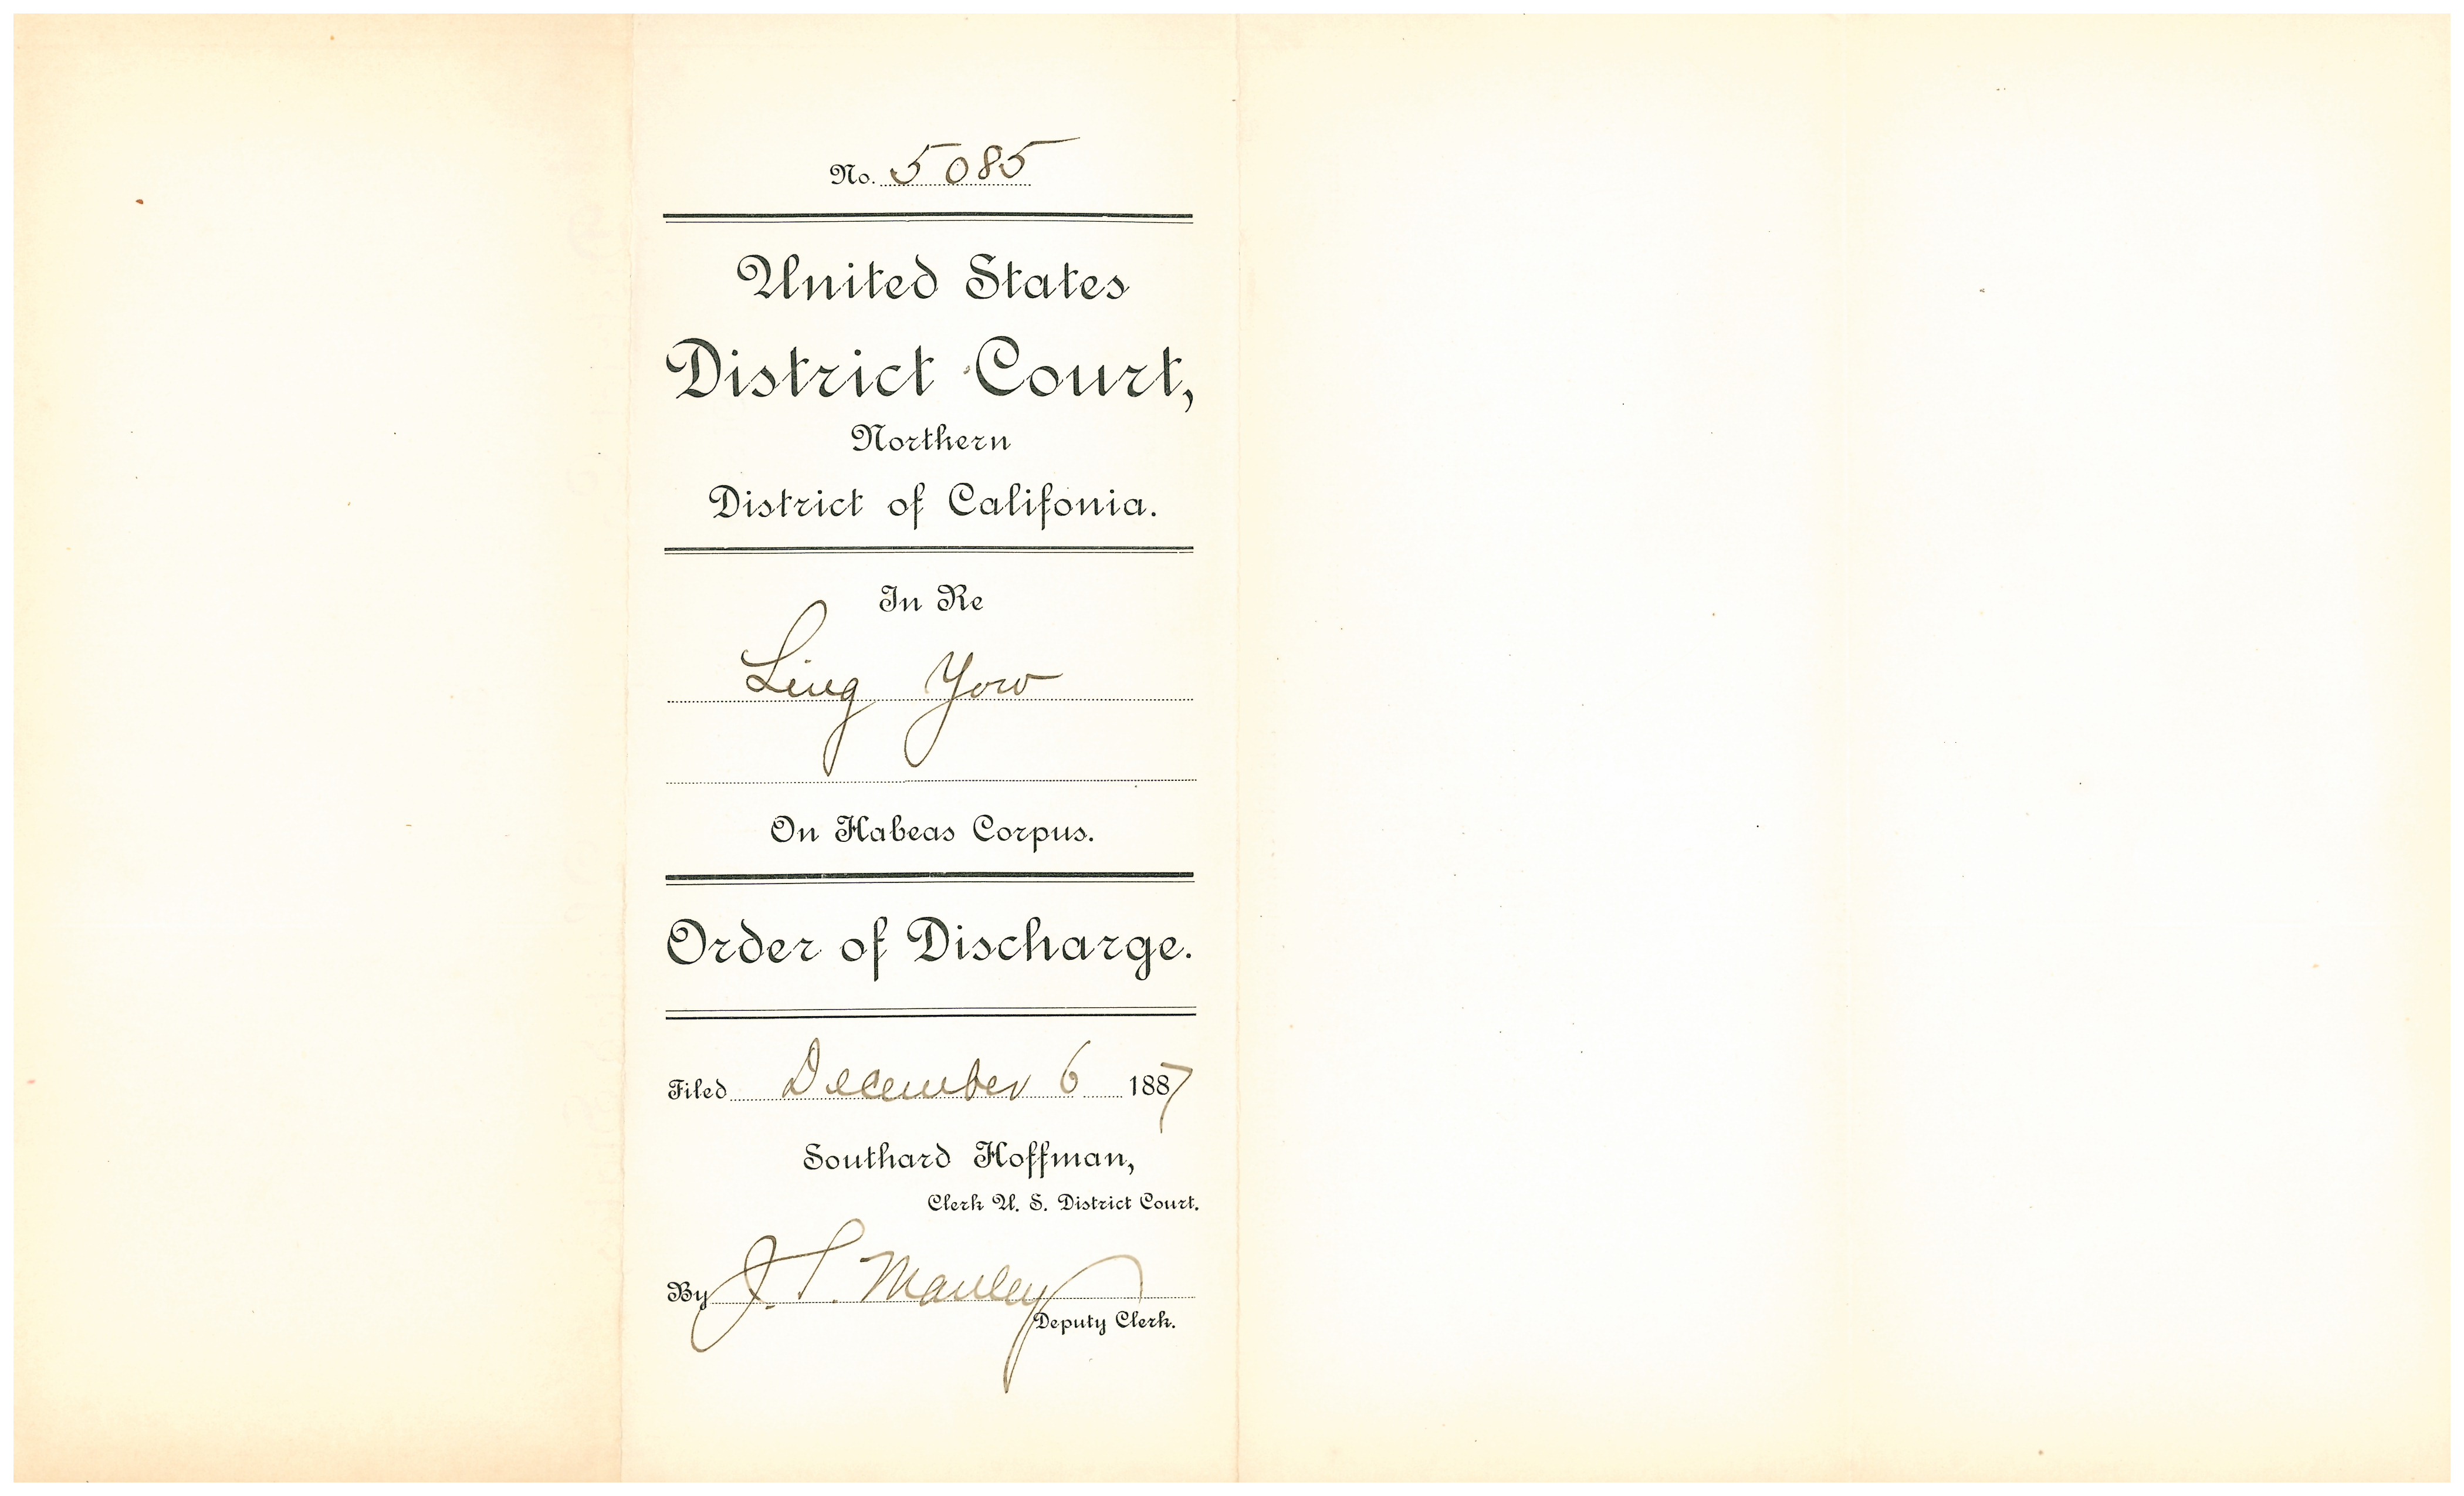 No. 5085
United States
District Court,
Northern
District of Califonia.
In Re
Ling Yow
On Habeas Corpus.
Order of Discharge.
Filed December 6 1887
Southard Hoffman,
Clerk U. S. District Court.
By J. S. Manley
Deputy Clerk.